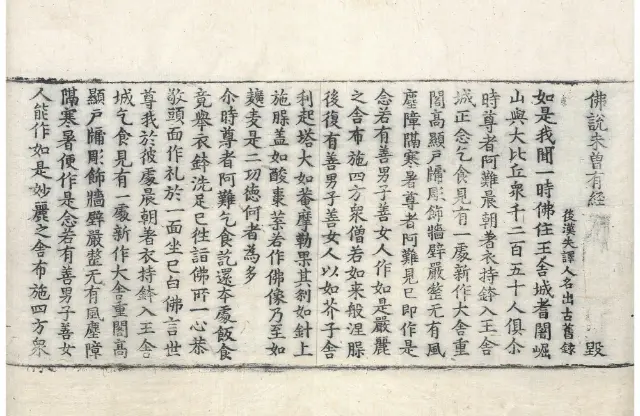 佛說未曾有經 毀
後漢失譯人名出古舊錄
如是我聞一時佛住王舍城耆闍崛
山與大比丘衆千二百五十人俱尒
時尊者阿難晨朝著衣持鉢入王舍
城正念乞食見有一處新作大舍重
閣高顯戶牖彫飾牆壁嚴整无有風
塵障隔寒暑尊者阿難見已即作是
念若有善男子善女人作如是嚴麗
之舍布施四方衆僧若如来般涅
後復有善男子善女人以如芥子舍
利起塔大如菴摩勒果其刹如針上
施盖如酸棗葉若作佛像乃至如
麦是二功德何者為多
尒時尊者阿難乞食訖還本處飯食
竟舉衣鉢洗足已徃詣佛所一心恭
敬頭面作礼於一面坐已白佛言世
尊我於彼處晨朝著衣持鉢入王舍
城乞食見有一處新作大舍重閣高
顯戶牖彫飾牆壁嚴整无有風塵障
隔寒暑便作是念若有善男子善女
人能作如是妙麗之舍布施四方衆